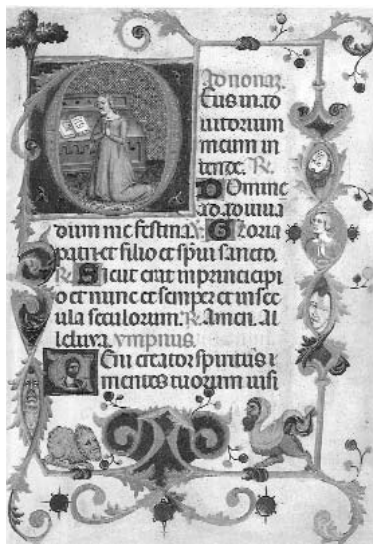 Ad nonaz.
Eus in ad
iutorium
meum in
tende. R.
Domine
ad adiuua
dum me festina. V. Gloria
patri et filio et spiui sancto.
R. Sicut erat in principi
o et nunc et semper et in sec
ula seculorum. R. Amen. Al
leluya. ympnus.
Eni creator spiritus
mentes tuorum uisi